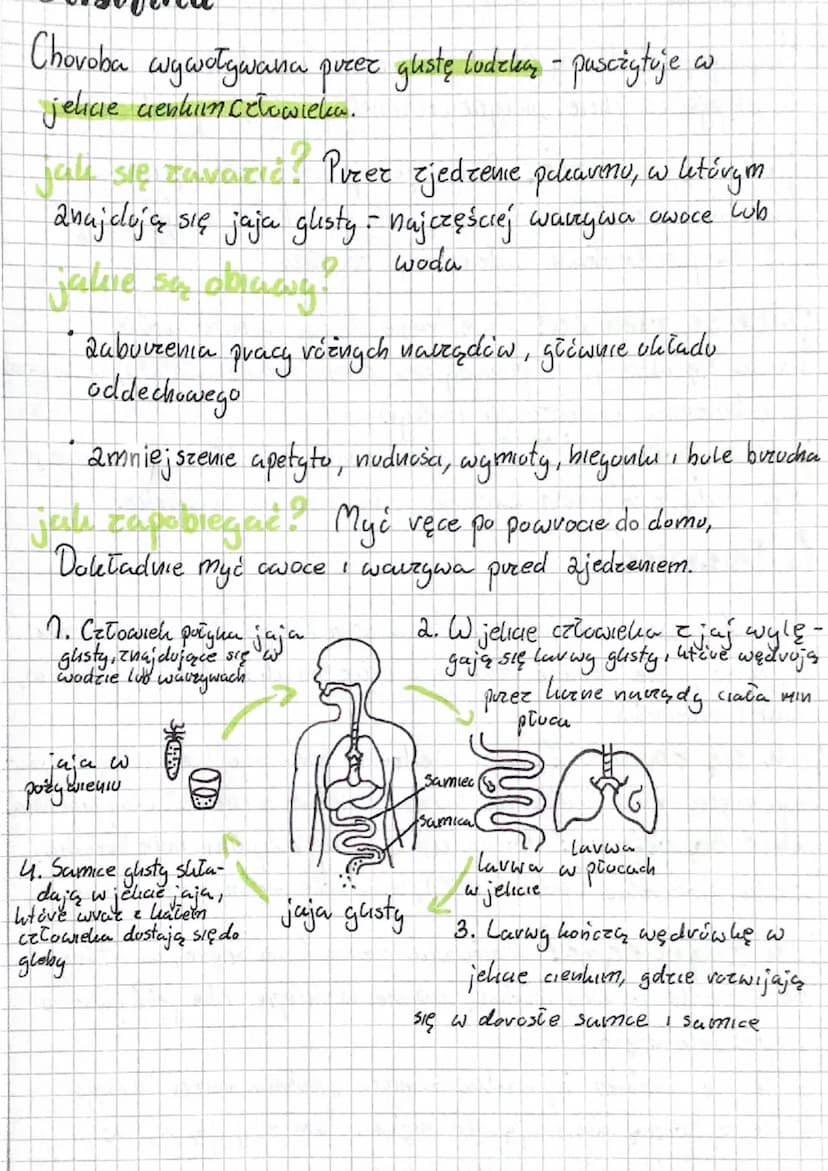 Choroba wywoływana przez glistę ludzką - pasożytuje w
jelicie cienkim człowieka.
jak się zarazić? Przez zjedzenie pokarmu, w którym
znajdują się jaja glisty - najczęściej warzywa owoce lub
woda
jakie są obiawy?
• zaburzenia pracy różnych narządów, głównie układu
oddechowego
• zmniejszenie apetytu, nudności, wymioty, biegunki i bóle brzucha
jak zapobiegać? Myć ręce po powrocie do domu,
Dokładnie myć owoce i warzywa przed zjedzeniem.
1. Człowiek połyka jaja
glisty, znajdujące się w
wodzie lub warzywach
2. W jelicie człowieka z jaj wylę-
gają się larwy glisty, które wędrują
przez liczne narządy ciała min
płuca
jaja w
pożywieniu
samiec
samica
larwa
w jelicie
larwa
w płucach
4. Samice glisty skła-
dają w jelicie jaja,
które wraz z kałem
człowieka dostają się do
gleby
jaja glisty
3. Larwy kończą wędrówkę w
jelicie cienkim, gdzie rozwijają
się w dorosłe samce i samice